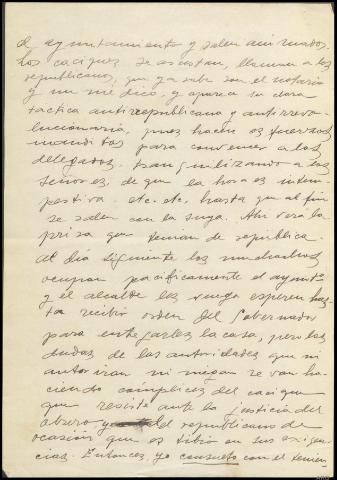 el ayuntamiento y salen animados.
Los caciques se asustan, llaman a los
republicanos, que ya sabe son el notario
y un medico, y aparece su clara
tactica antirrepublicana y antirrevo-
lucionaria, pues hacen esfuerzos
inauditos para convencer a los
delegados, tranquilizando a los
señores, de que la hora es intem-
pestiva. etc. etc. hasta que al fin
se salen con la suya. Ahi vera la
prisa que tenian de republica.
Al día siguiente los muchachos
ocupan pacificamente el aynto
y el alcalde les ruega esperen has-
ta recibir orden del Gobernador
para entregarles la casa, pero las
dudas de las autoridades que ni
autorizan ni niegan se van ha-
ciendo complices del cacique
que resiste ante la justicia del
obrero y del republicano de
ocasión que es tibio en sus exigen-
cias. Entonces yo consulto con el tenien-